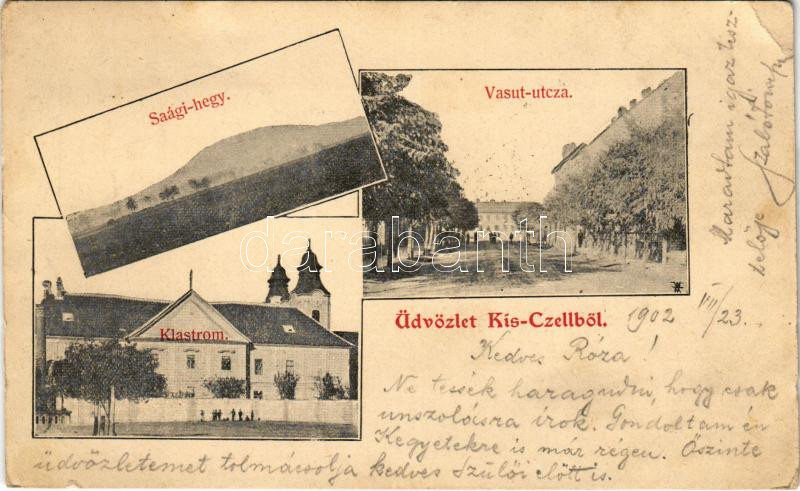 Saági-hegy.
Vasut-utcza.
Klastrom.
Üdvözlet Kis-Czellből.
1902 VII/23.
Kedves Róza!
Ne tessék haragudni, hogy csak
unszolásra írok. Gondoltam én
Kegyetekre is már régen. Őszinte
üdvözletemet tolmácsolja kedves Szülői előtt is.
Maradtam igaz tisz-
telője
darabanth.com